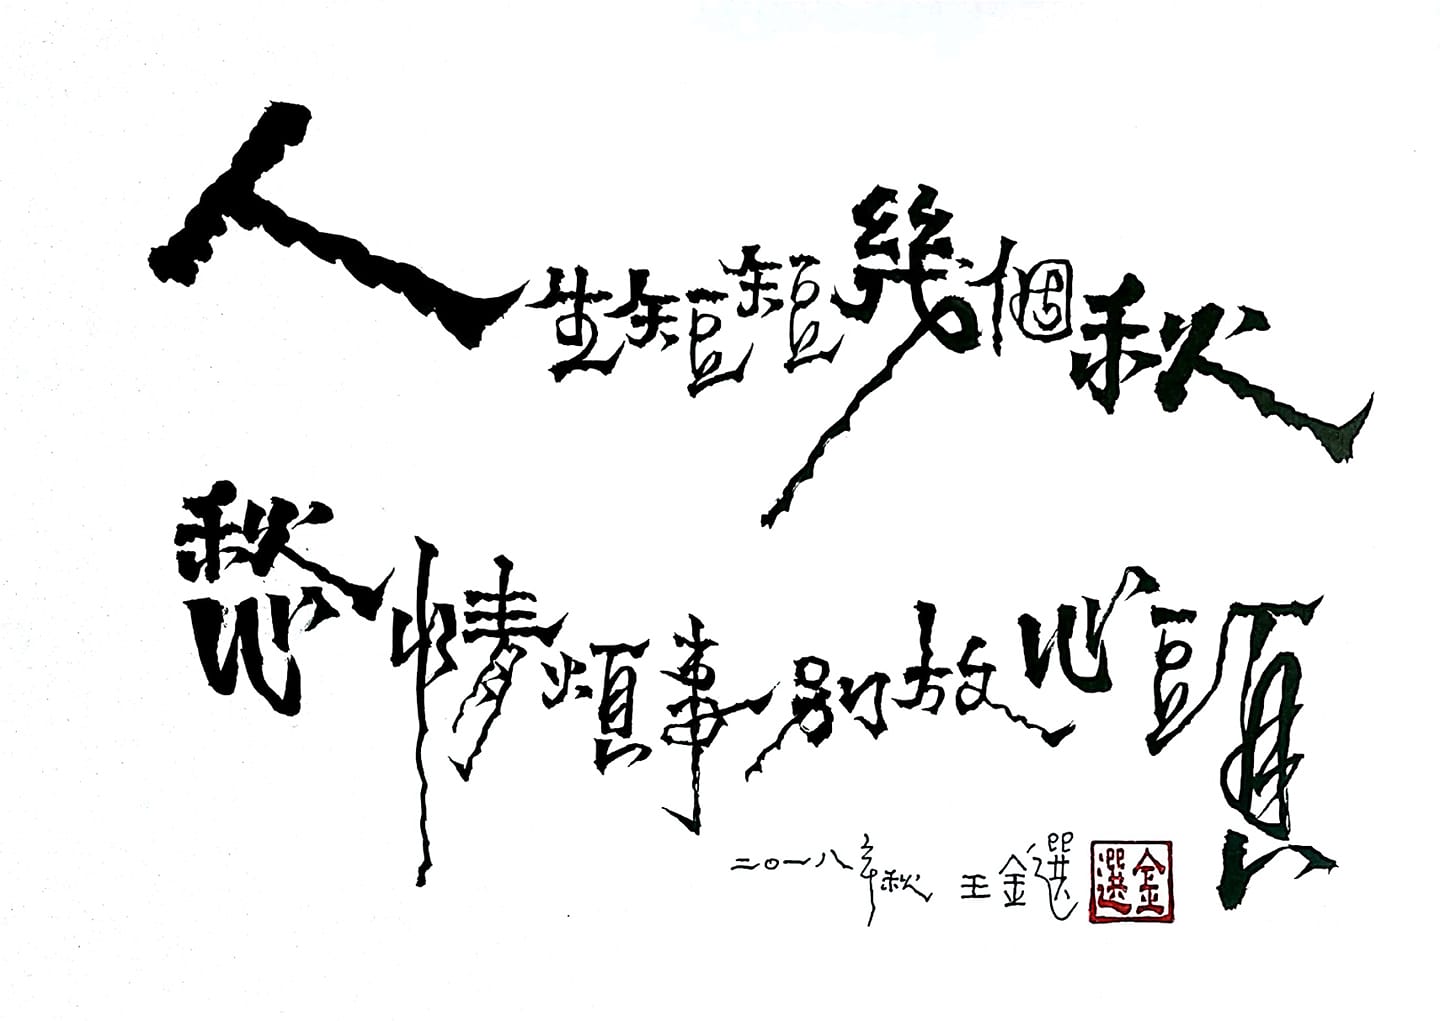 人生短短幾個秋
愁情煩事別放心頭
二〇一八年秋 王金選
金選